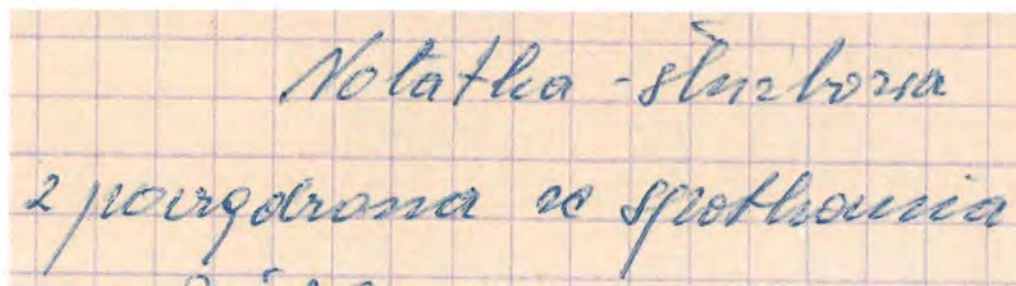 Notatka - służbowa
sporządzona ze spotkania